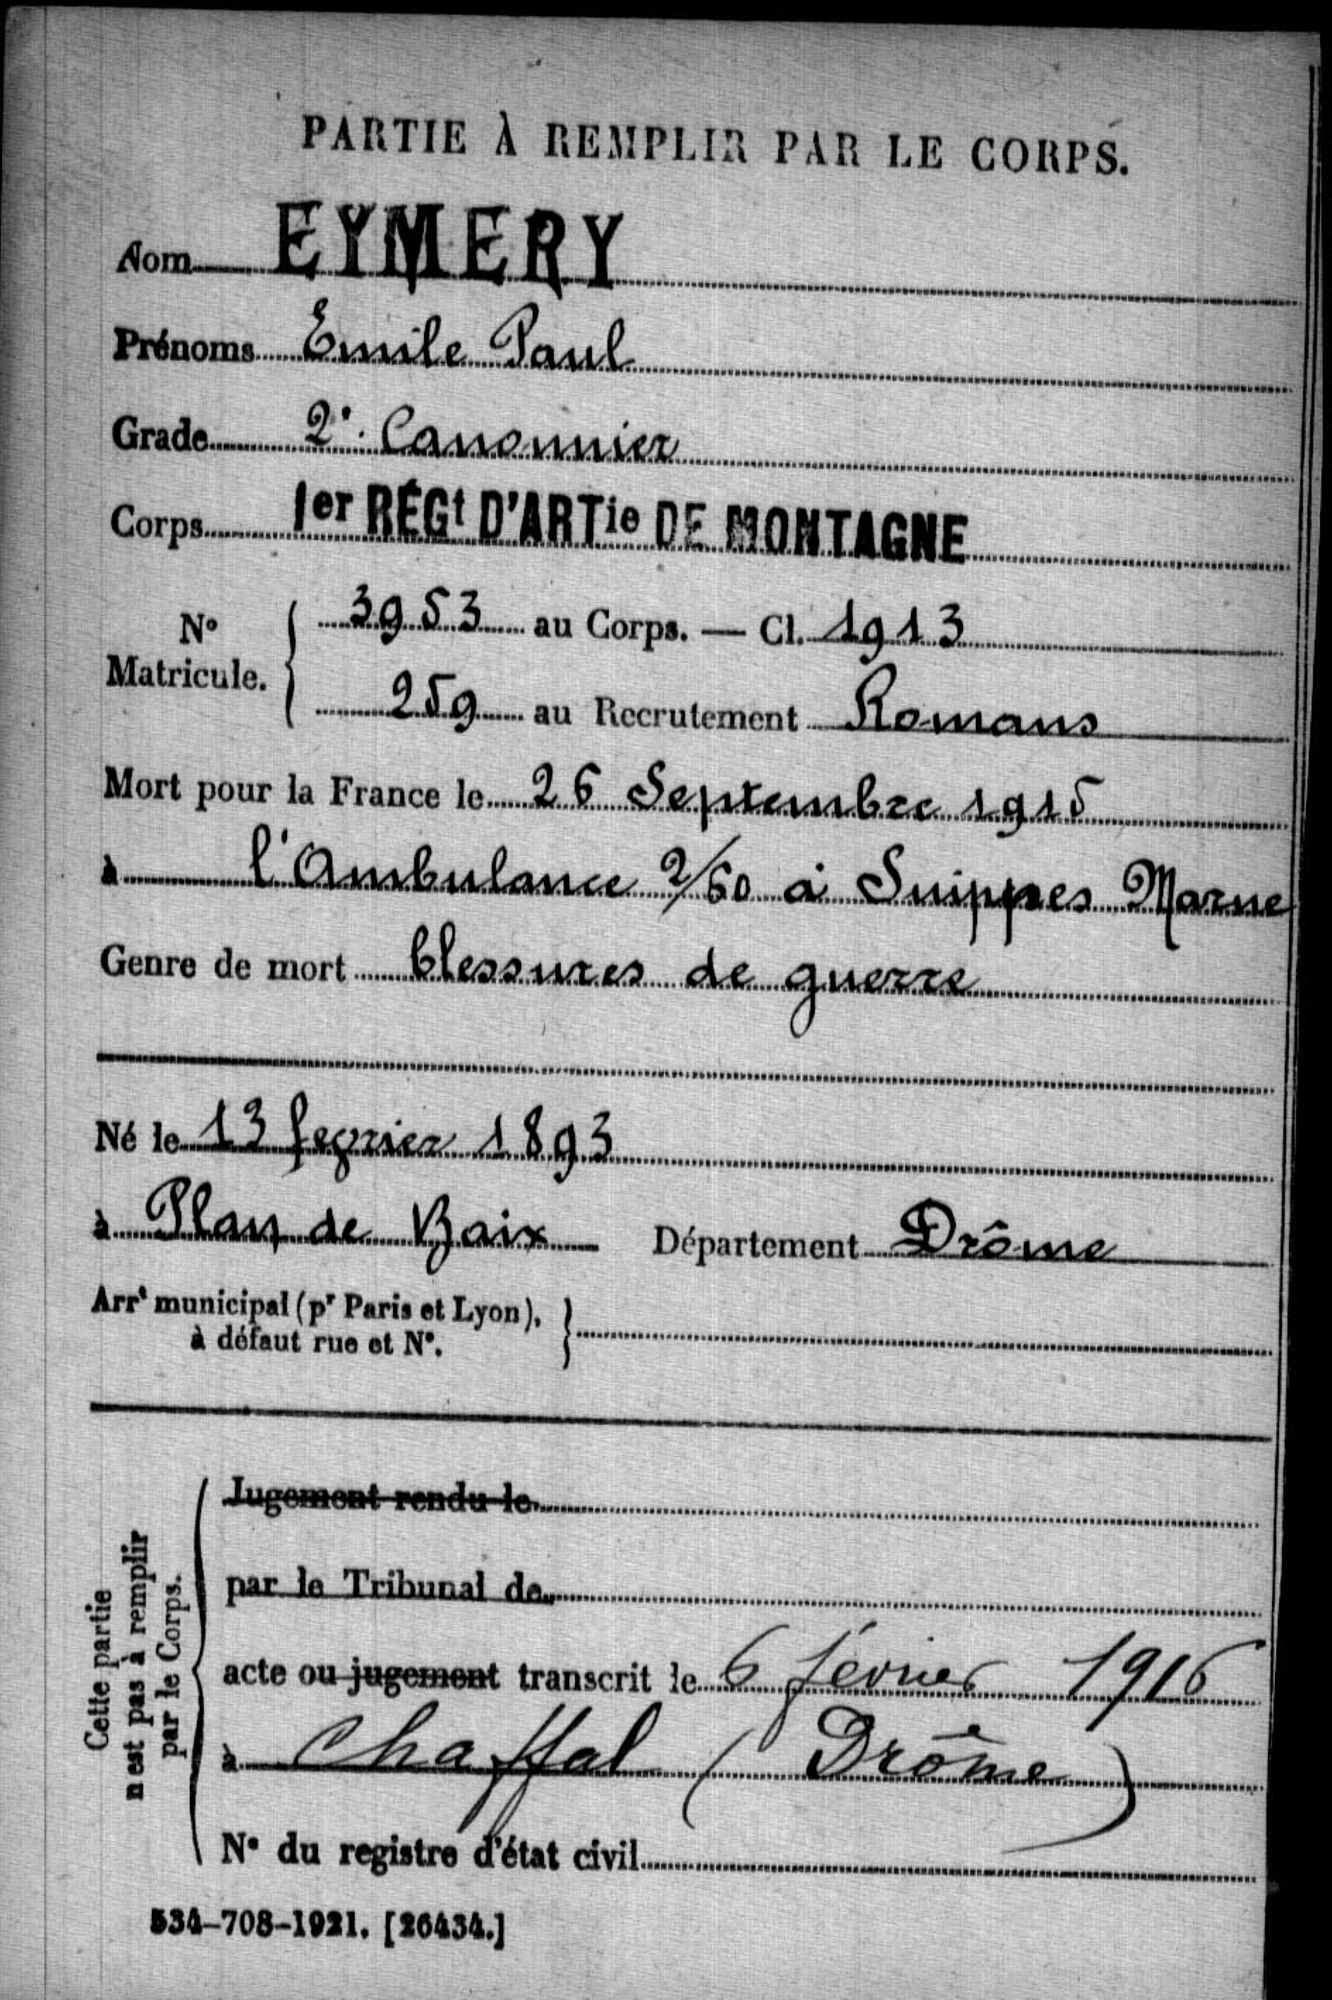 PARTIE À REMPLIR PAR LE CORPS.
Nom EYMERY
Prénoms Emile Paul
Grade 2e Canonnier
Corps 1er RÉGt D'ARTie DE MONTAGNE
No Matricule. { 3953 au Corps. — Cl. 1913
259 au Recrutement Romans
Mort pour la France le 26 Septembre 1915
à l'Ambulance 2/60 à Suippes Marne
Genre de mort blessures de guerre
Né le 13 fevrier 1893
à Plan de Baix Département Drôme
Arrt municipal (pr Paris et Lyon),
à défaut rue et No.
Cette partie
n'est pas à remplir
par le Corps.
Jugement rendu le
par le Tribunal de
acte ou jugement transcrit le 6 février 1916
à Chaffal (Drôme)
No du registre d'état civil
534-708-1921. [26434.]